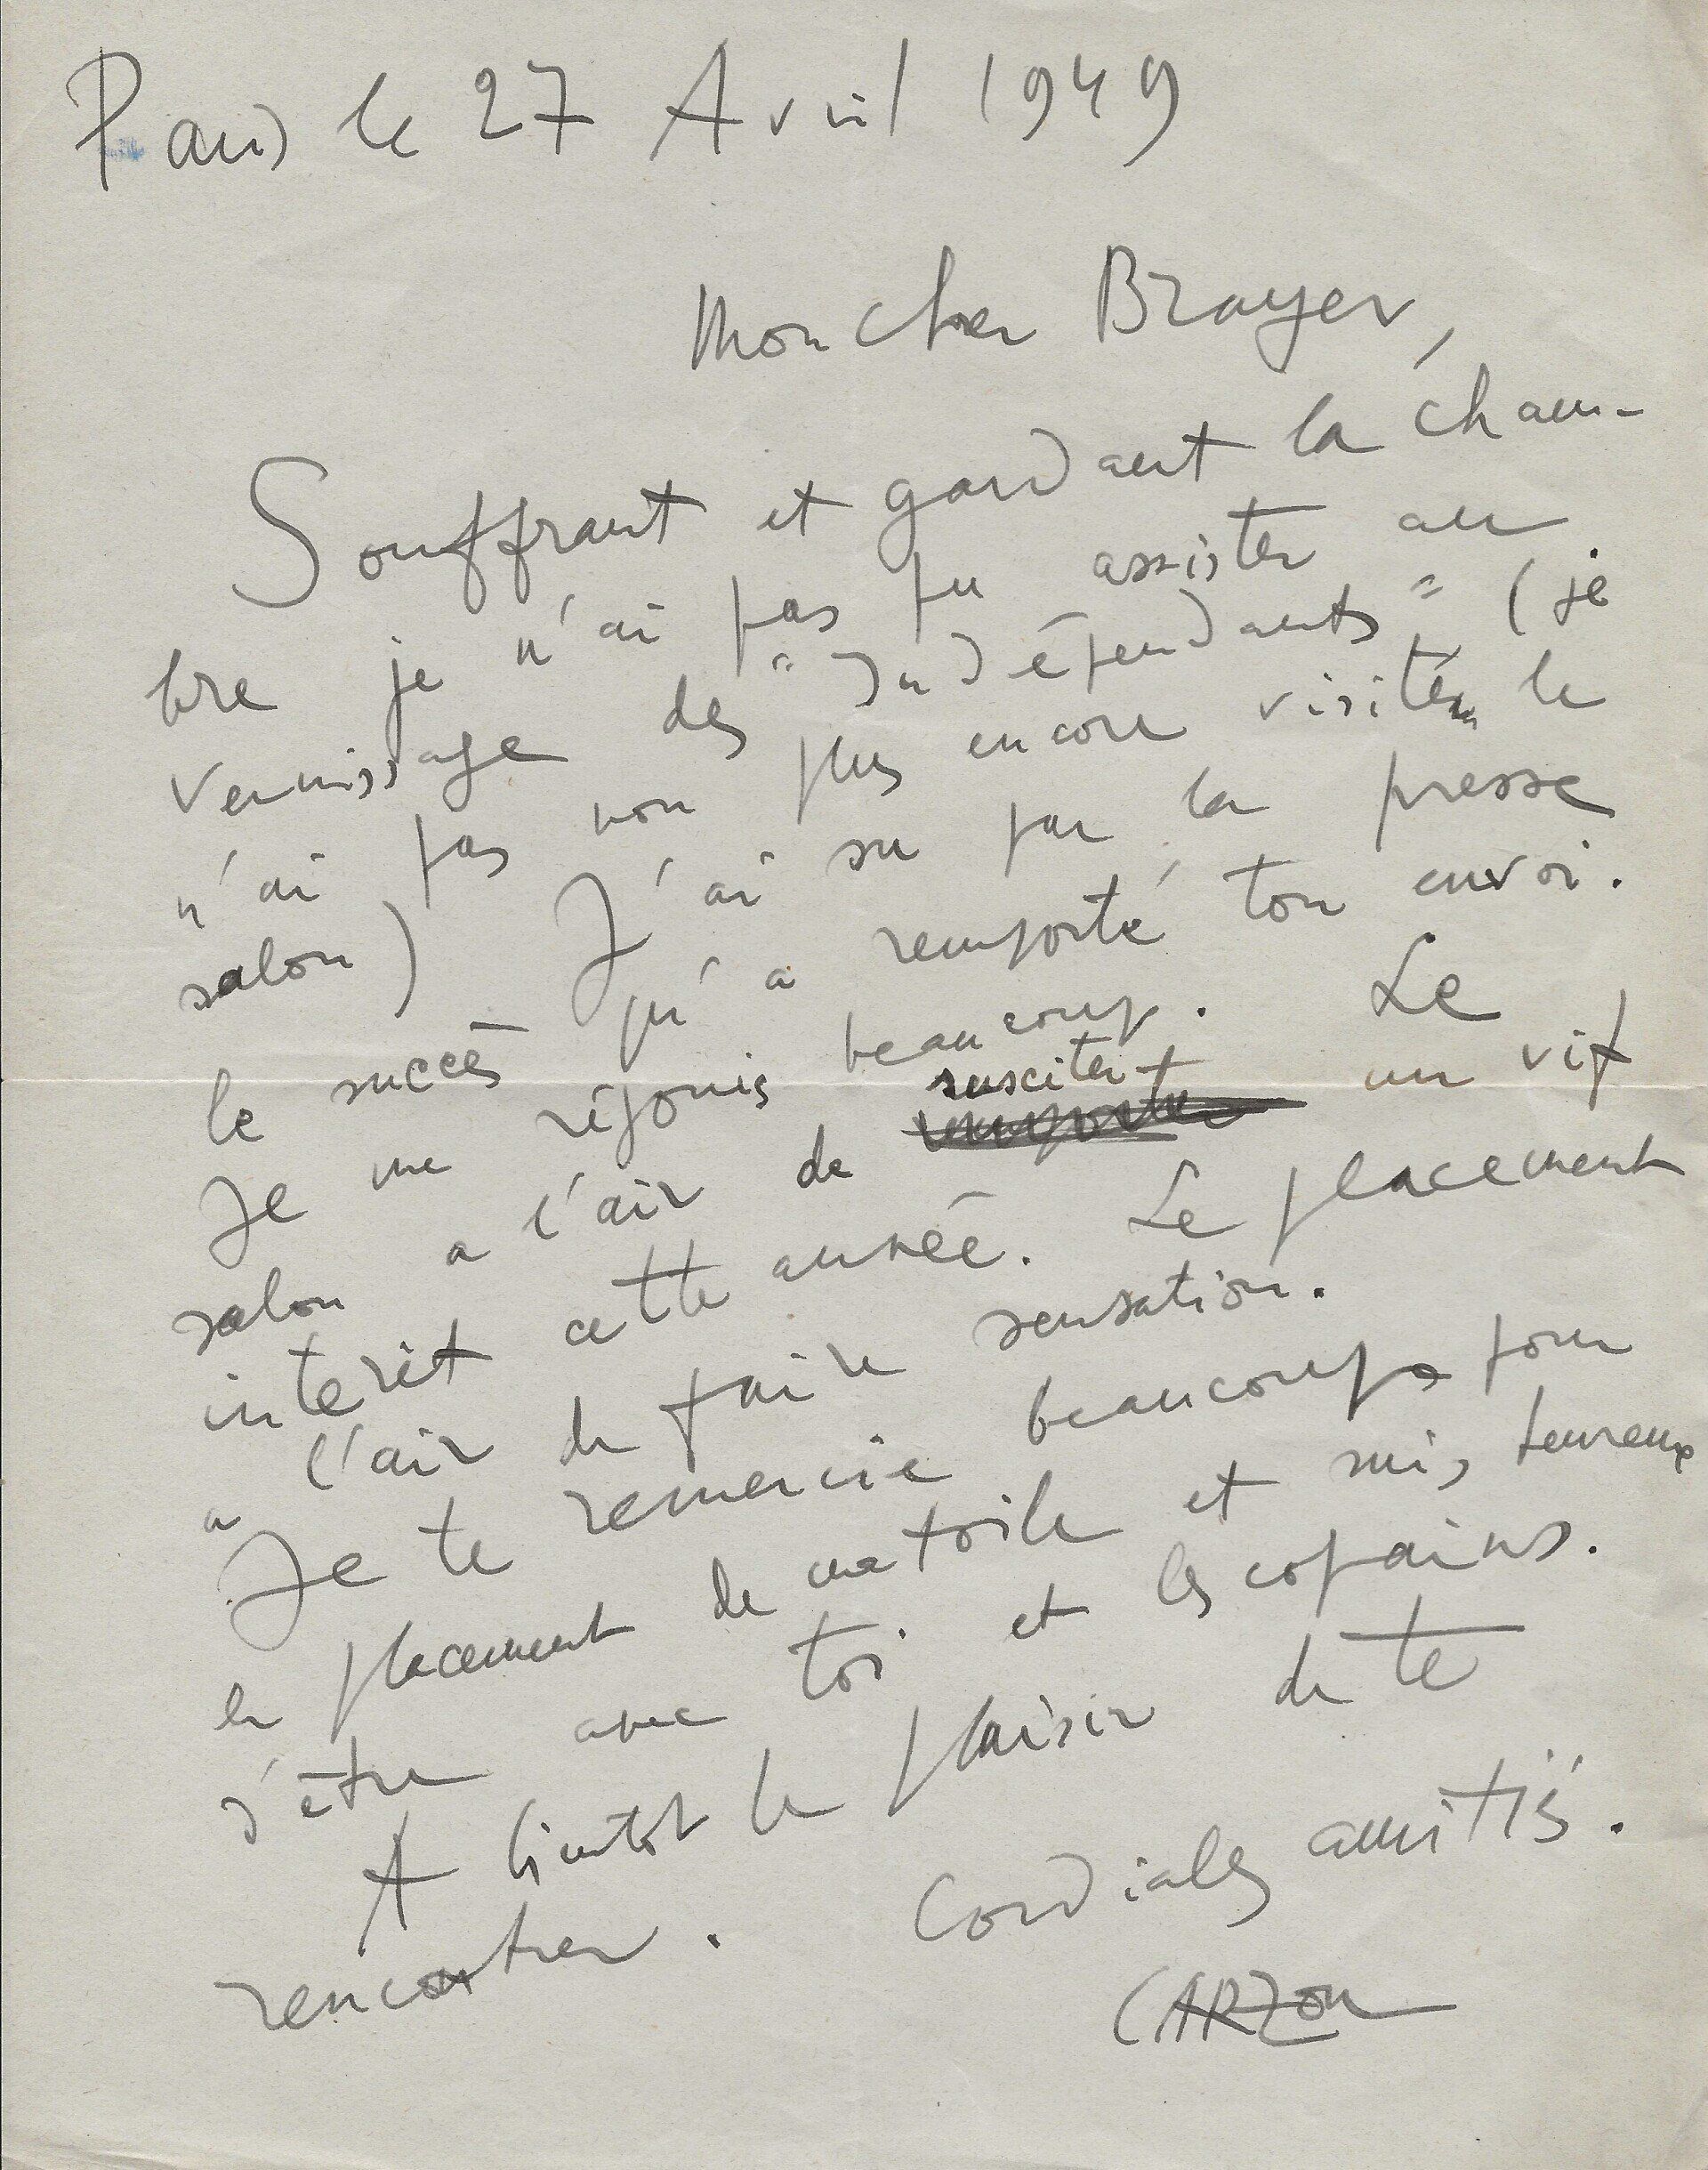 Paris le 27 Avril 1949
Mon cher Brayer,
Souffrant et gardant la cham-
bre je n'ai pas pu assister au
vernissage des "Indépendants" (je
n'ai pas non plus encore visité le
salon) J'ai su par la presse
le succès qu'a remporté ton envoi.
Je me réjouis beaucoup. Le
salon a l'air de susciter un vif
intérêt cette année. Le placement
a l'air de faire sensation.
Je te remercie beaucoup pour
le placement de ma toile et suis heureux
d'être avec toi et les copains.
A bientôt le plaisir de te
rencontrer. Cordiales amitiés.
CARZOU